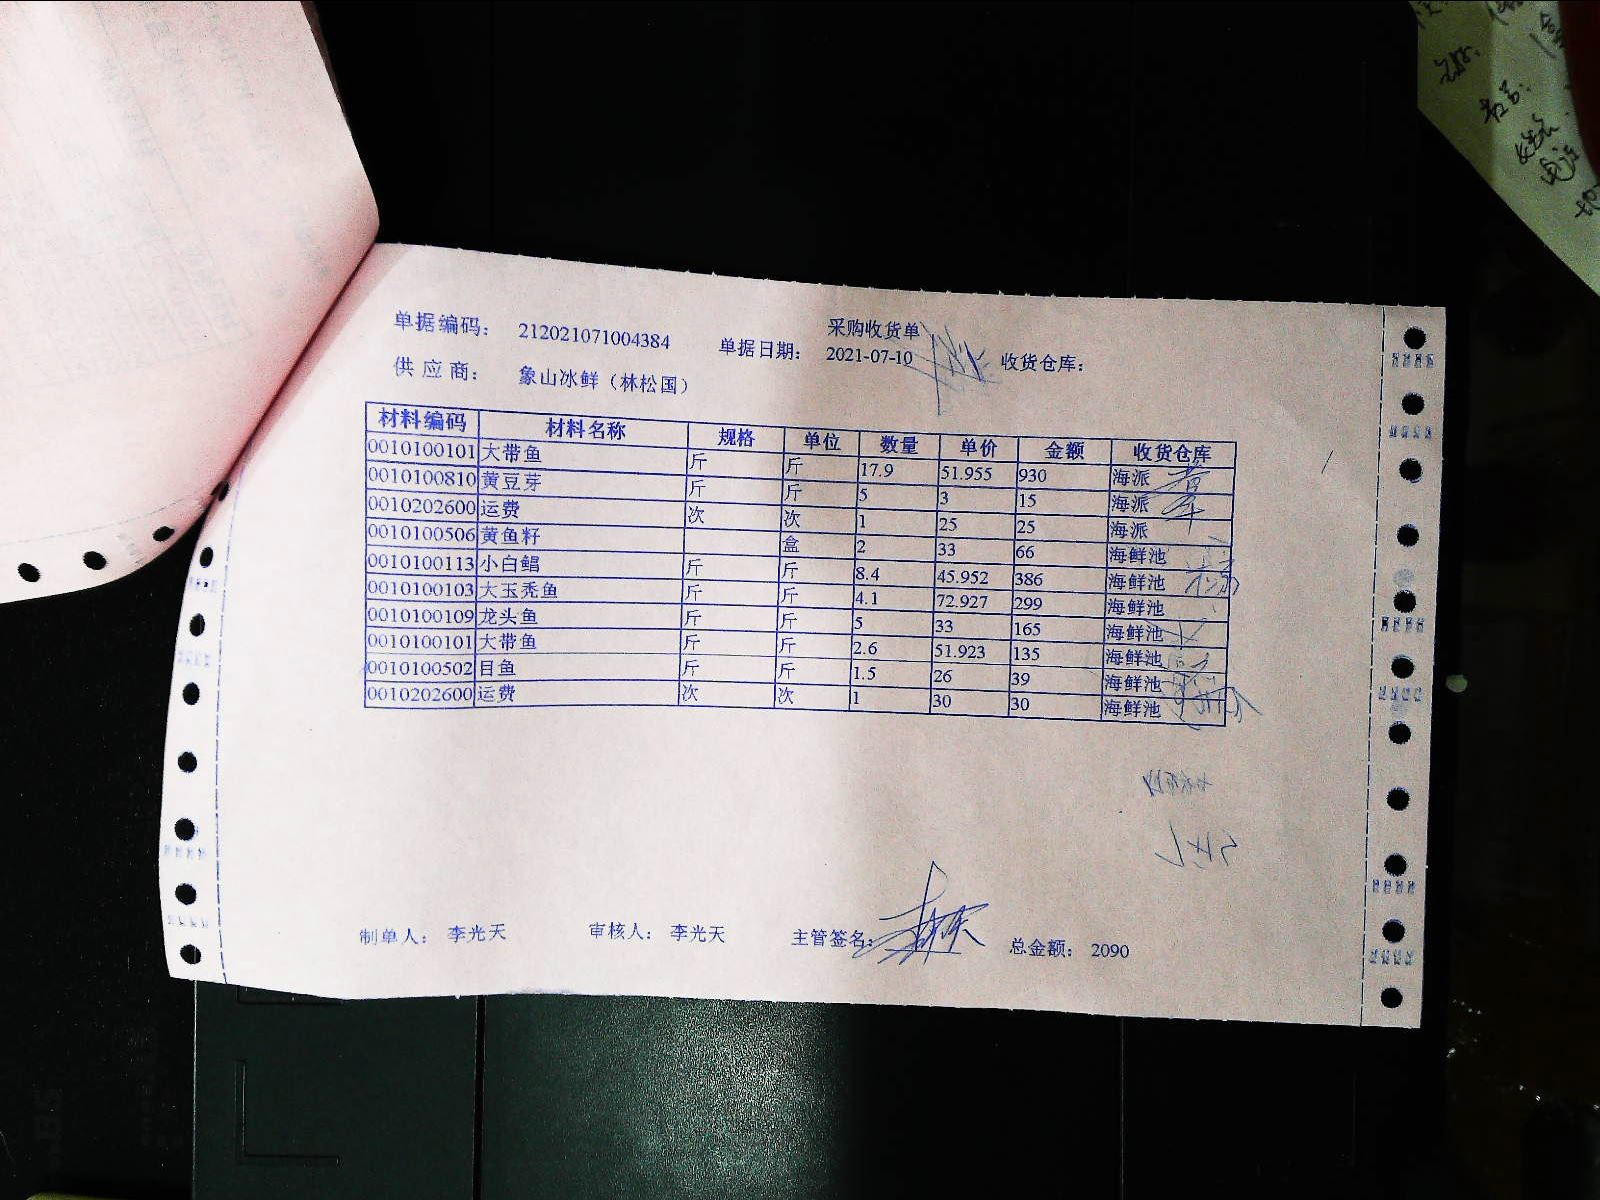 采购收货单
单据编码： 212021071004384 单据日期： 2021-07-10 收货仓库：
供 应 商： 象山冰鲜（林松国）
材料编码 材料名称 规格 单位 数量 单价 金额 收货仓库
0010100101 大带鱼 斤 斤 17.9 51.955 930 海派
0010100810 黄豆芽 斤 斤 5 3 15 海派
0010202600 运费 次 次 1 25 25 海派
0010100506 黄鱼籽 盒 2 33 66 海鲜池
0010100113 小白鲳 斤 斤 8.4 45.952 386 海鲜池
0010100103 大玉秃鱼 斤 斤 4.1 72.927 299 海鲜池
0010100109 龙头鱼 斤 斤 5 33 165 海鲜池
0010100101 大带鱼 斤 斤 2.6 51.923 135 海鲜池
0010100502 目鱼 斤 斤 1.5 26 39 海鲜池
0010202600 运费 次 次 1 30 30 海鲜池
制单人： 李光天 审核人： 李光天 主管签名： 总金额： 2090